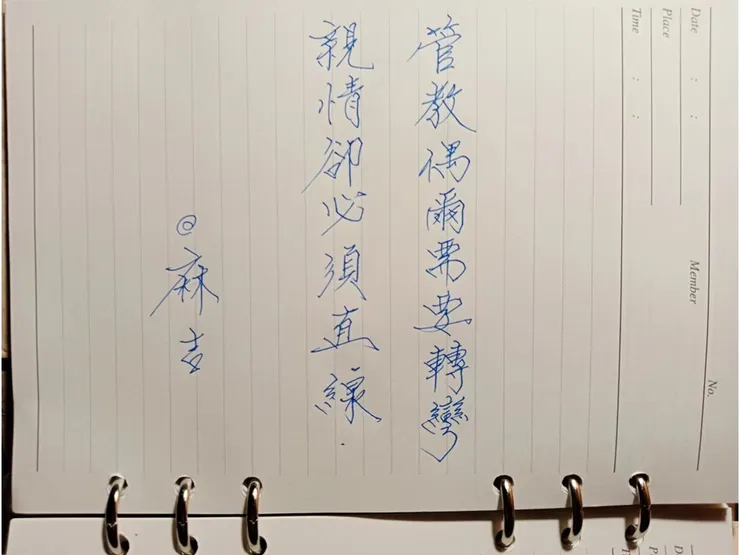 管教偶爾需要轉彎
親情卻必須直線.
@麻吉
No.
Member
Date : :
Place
Time : :